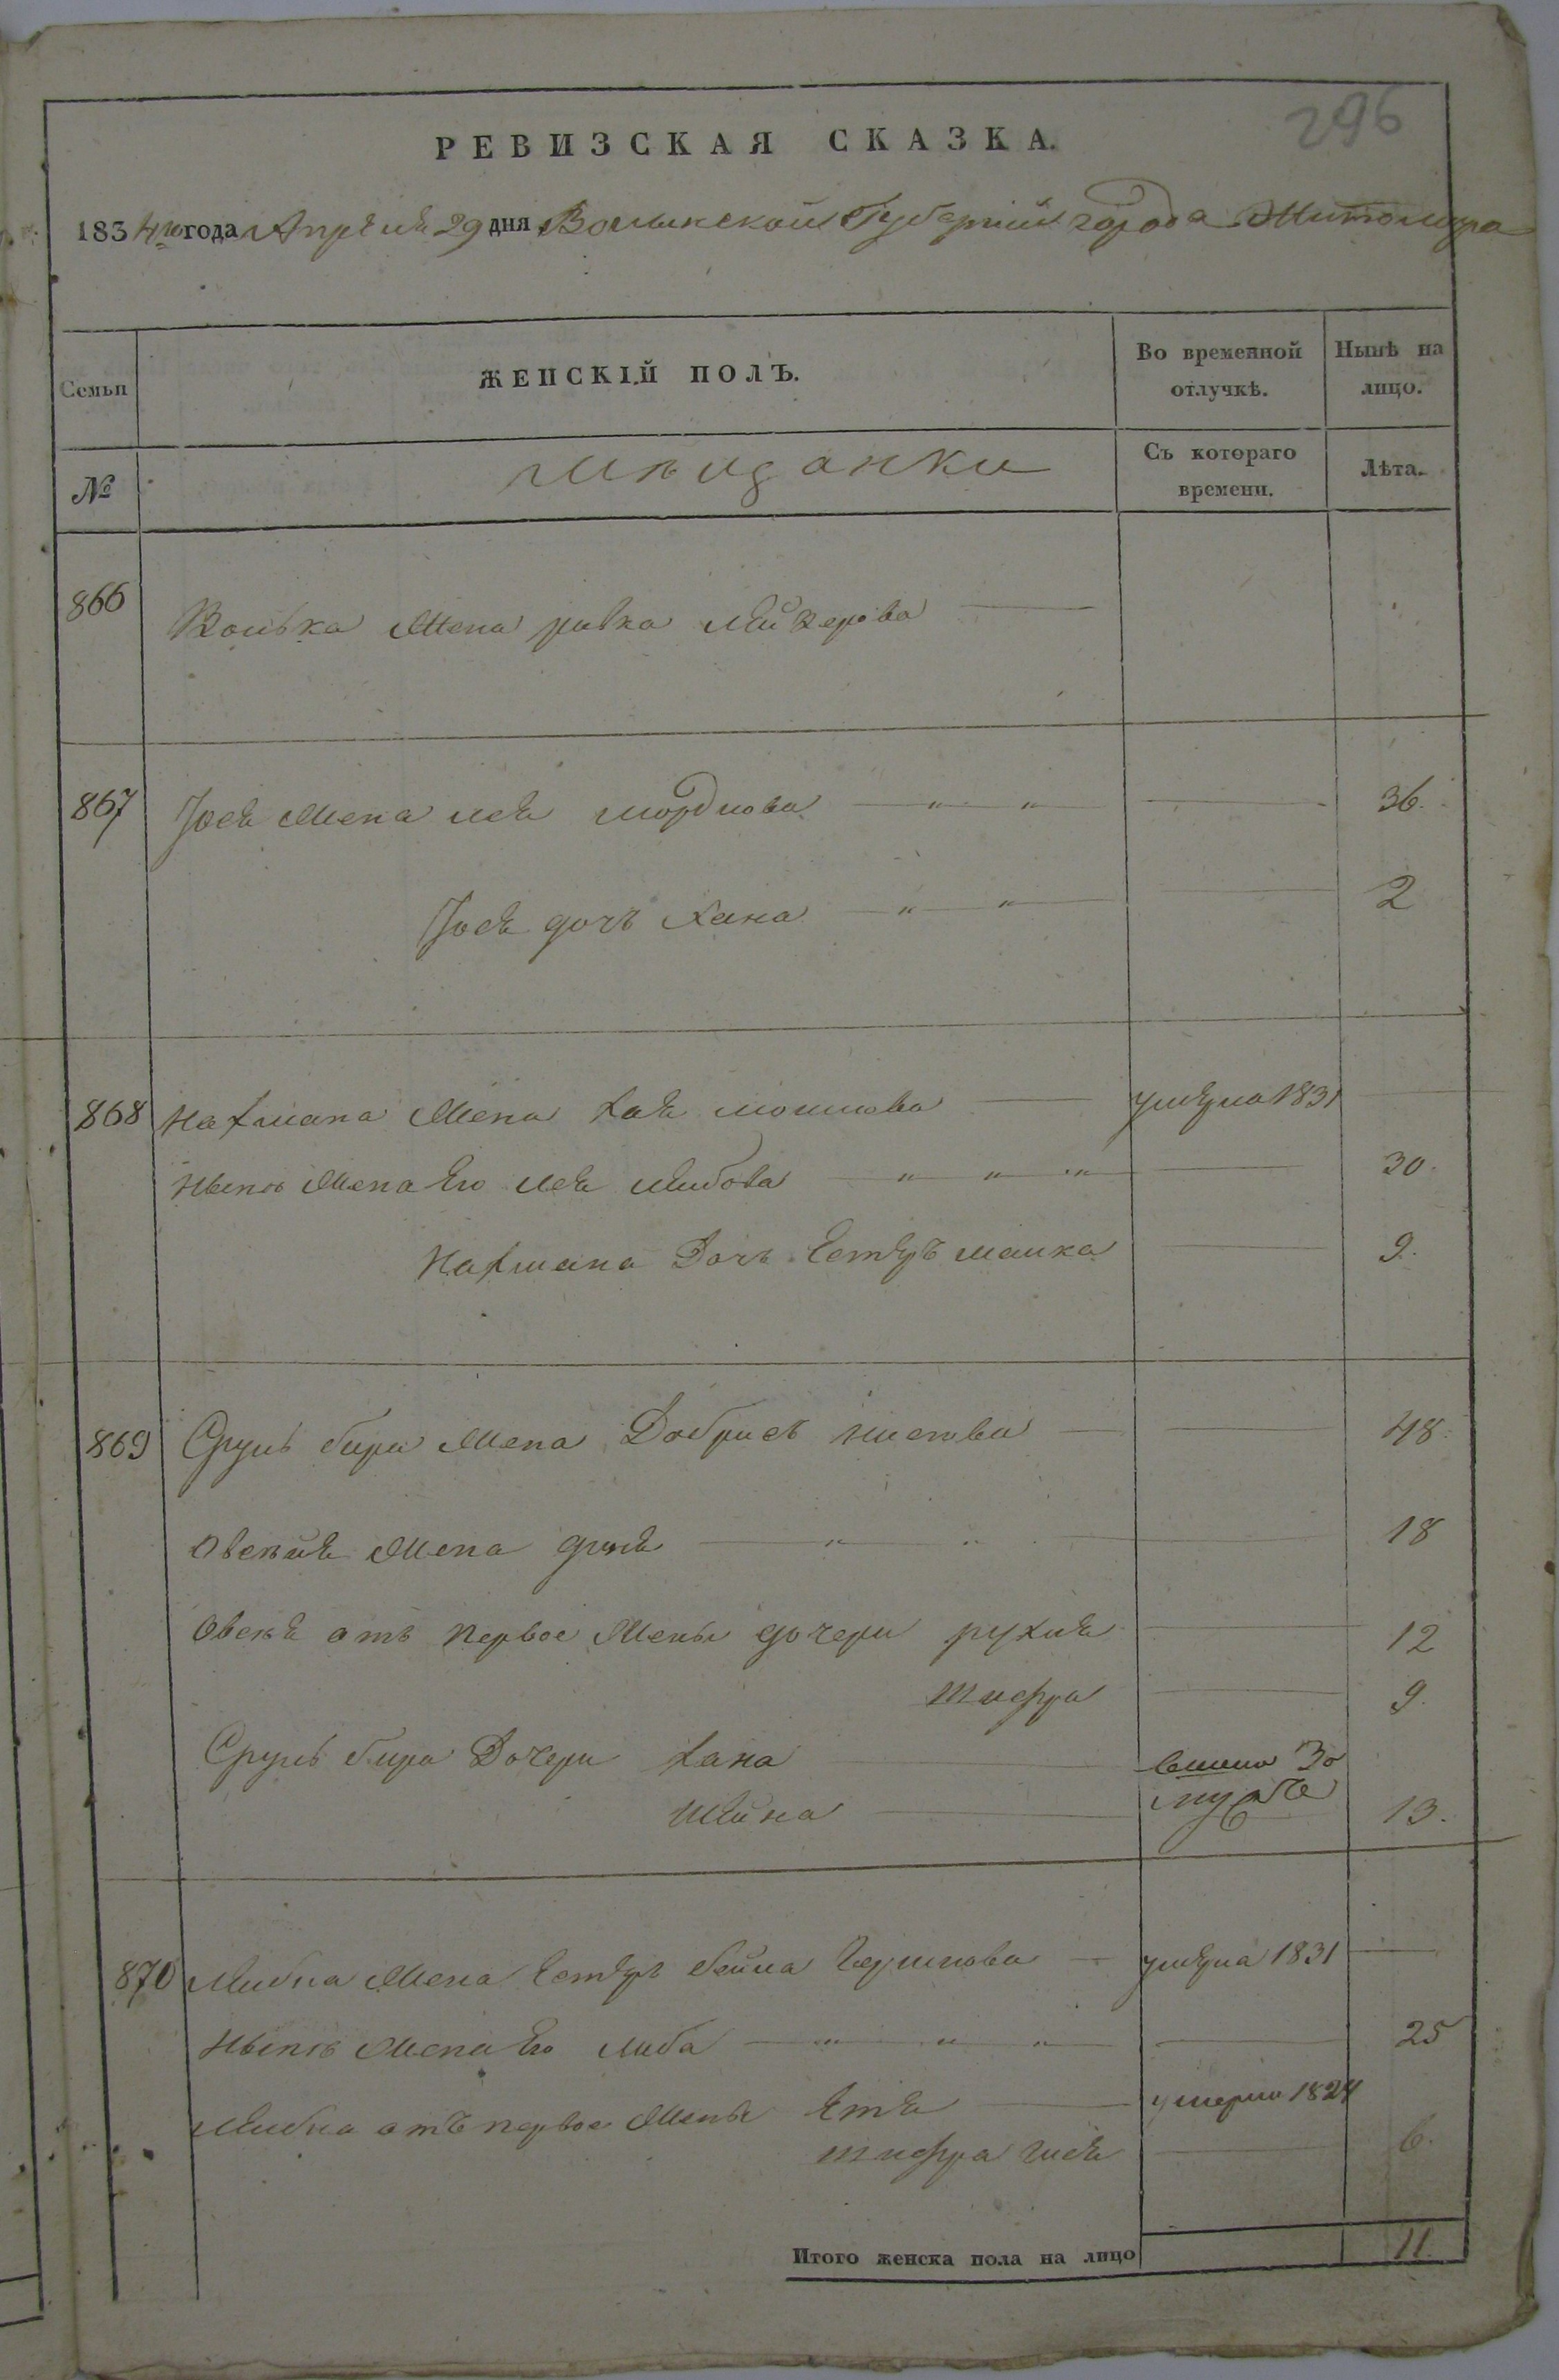 296
РЕВИЗСКАЯ СКАЗКА.
1834го года Апреля 29 дня Волынской Губернии города Житомира
Семьи
ЖЕНСКІЙ ПОЛЪ.
Во временной отлучкѣ.
Нынѣ на лицо.
№
мещанки
Съ котораго времени.
Лѣта.
866 Волька Жена ривка Мейерова
867 Иося Жена лея мордкова " " 36.
Иося дочь Хана " " 2
868 Нахмана Жена хая мошкова умерла 1831
Нынѣ Жена Его лея лейбова " " " 30.
Нахмана Дочь Естеръ малка 9.
869 Сруль бера Жена Добрись 48.
Овсея Жена " " 18
Овсея отъ первое Жены дочери рухля 12
Шифра 9.
Сруль бера Дочери Хана вышла За
Шейна мужъ 13.
870 Лейбы Жена Естеръ бейла Гершкова умерла 1831
Нынѣ Жена Его либа " " " 25
Лейбы отъ первое Жены Етя умерла 1824
шифра 6.
Итого женска пола на лицо 11.